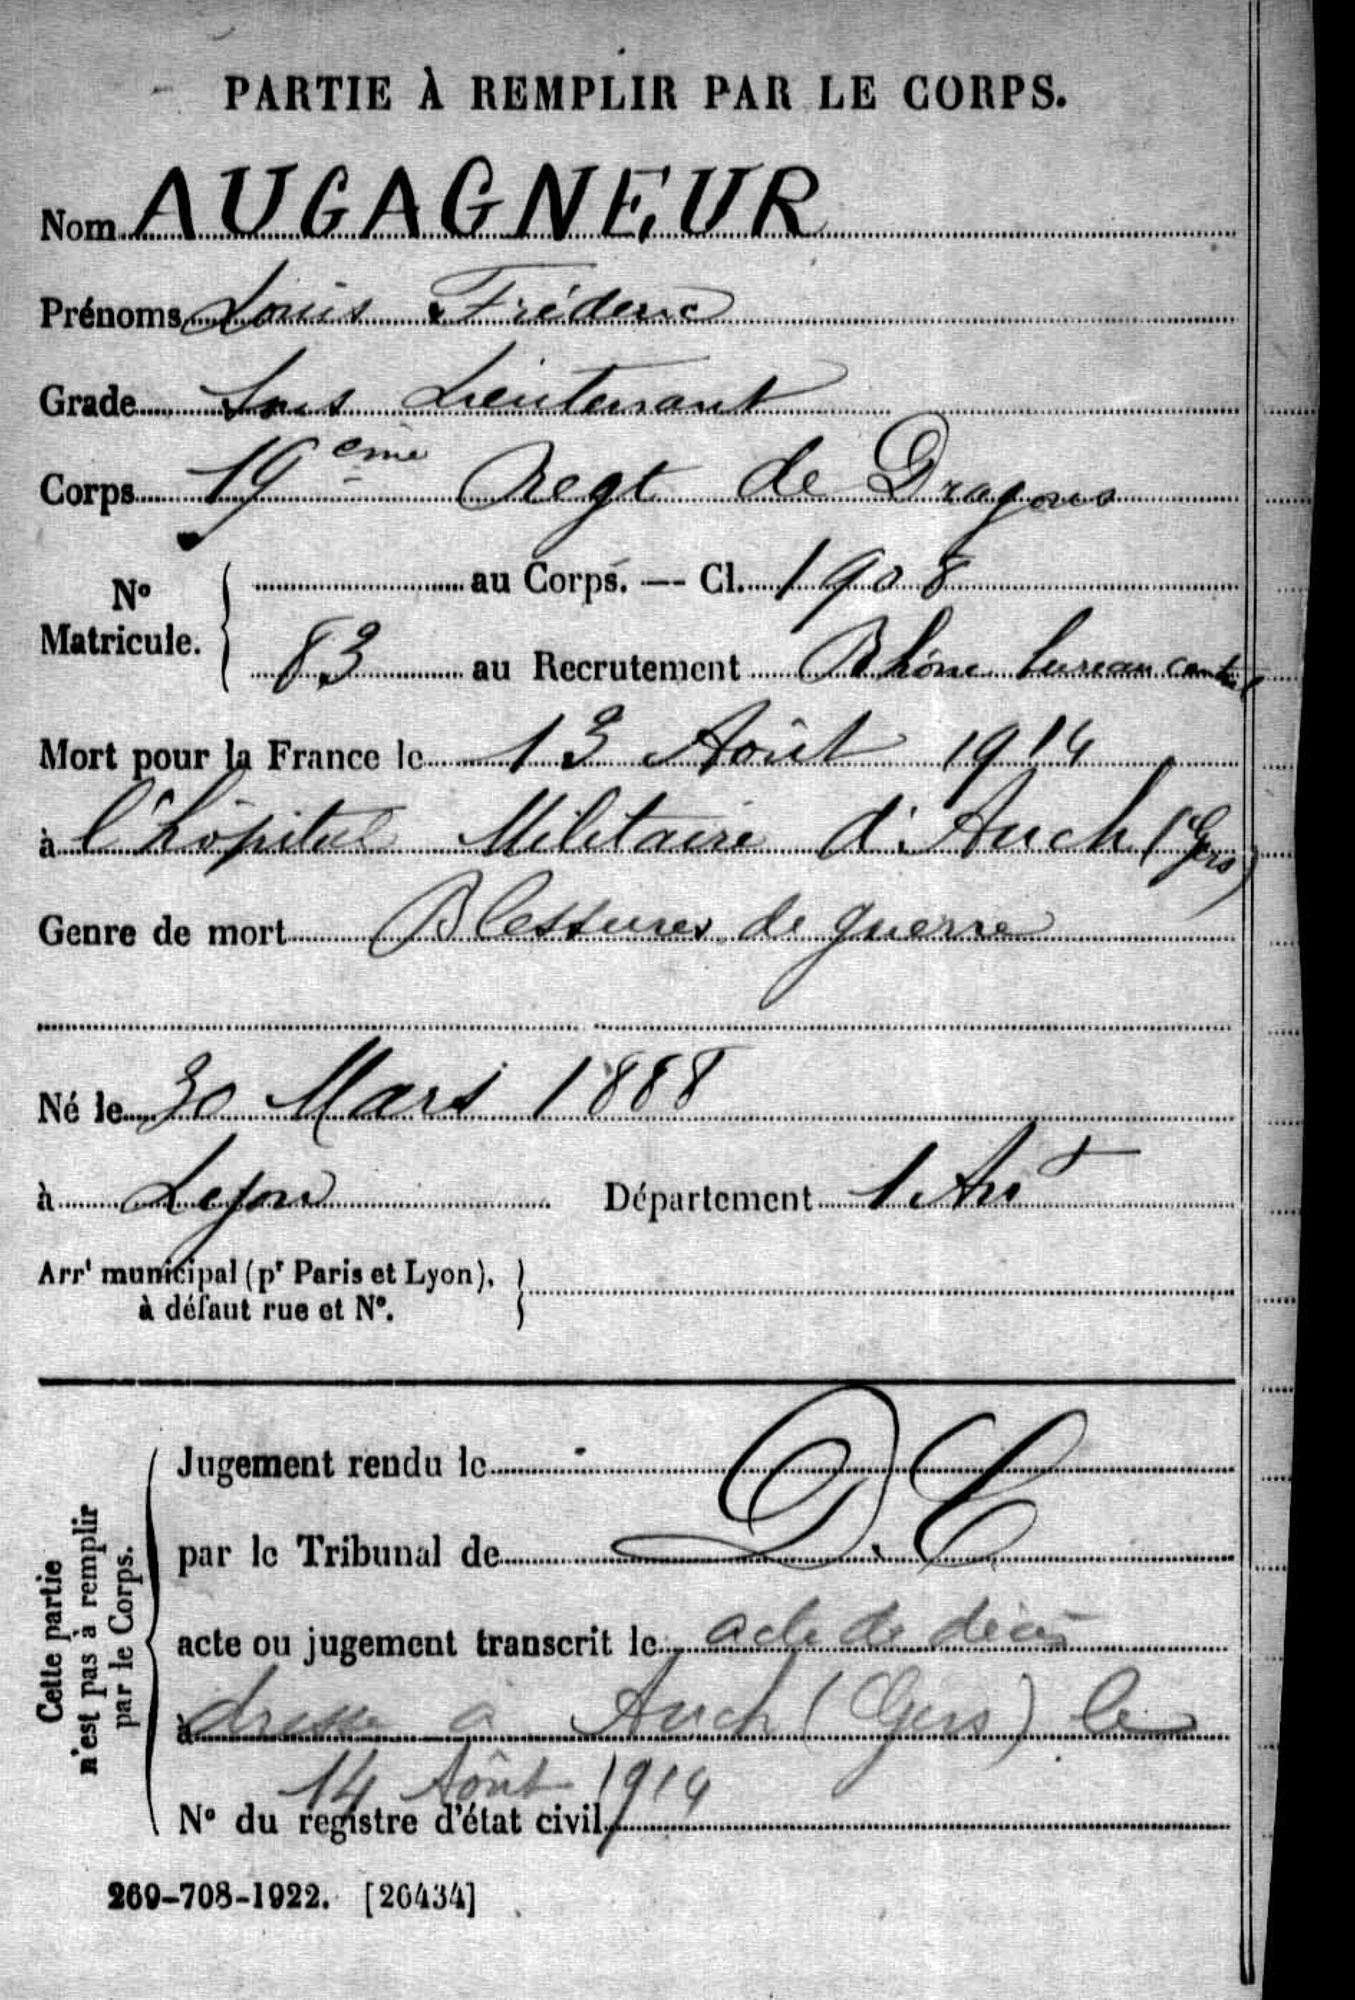 PARTIE À REMPLIR PAR LE CORPS.
Nom AUGAGNEUR
Prénoms Louis Fréderic
Grade Sous Lieutenant
Corps 19ème Regt de Dragons
N° Matricule. au Corps. — Cl. 1908
83 au Recrutement Rhône bureau central
Mort pour la France le 13 Août 1914
à l'hôpital Militaire d'Auch (Gers)
Genre de mort Blessures de guerre
Né le 30 Mars 1888
à Lyon Département 1 Arrt
Arrt municipal (pr Paris et Lyon),
à défaut rue et N°.
Cette partie
n'est pas à remplir
par le Corps.
Jugement rendu le D.C
par le Tribunal de
acte ou jugement transcrit le acte de décès
à dressé à Auch (Gers) le
14 Août 1914
N° du registre d'état civil
269-708-1922. [26434]